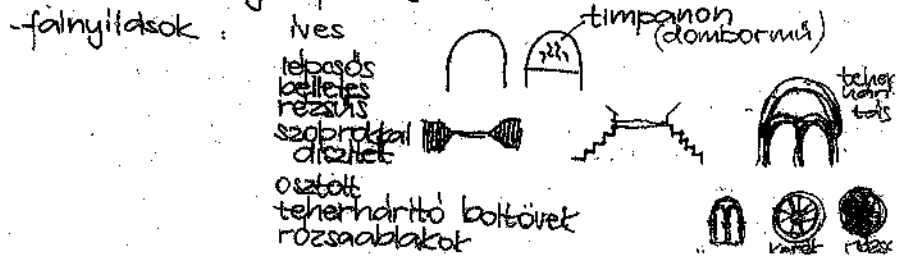 -falnyílások : íves
timpanon
(dombormű)
lépcsős
bélletes
rézsüs
szobrokkal
díszített
osztott
teherhárító boltövek
rózsaablakok
teher
hárí
tás